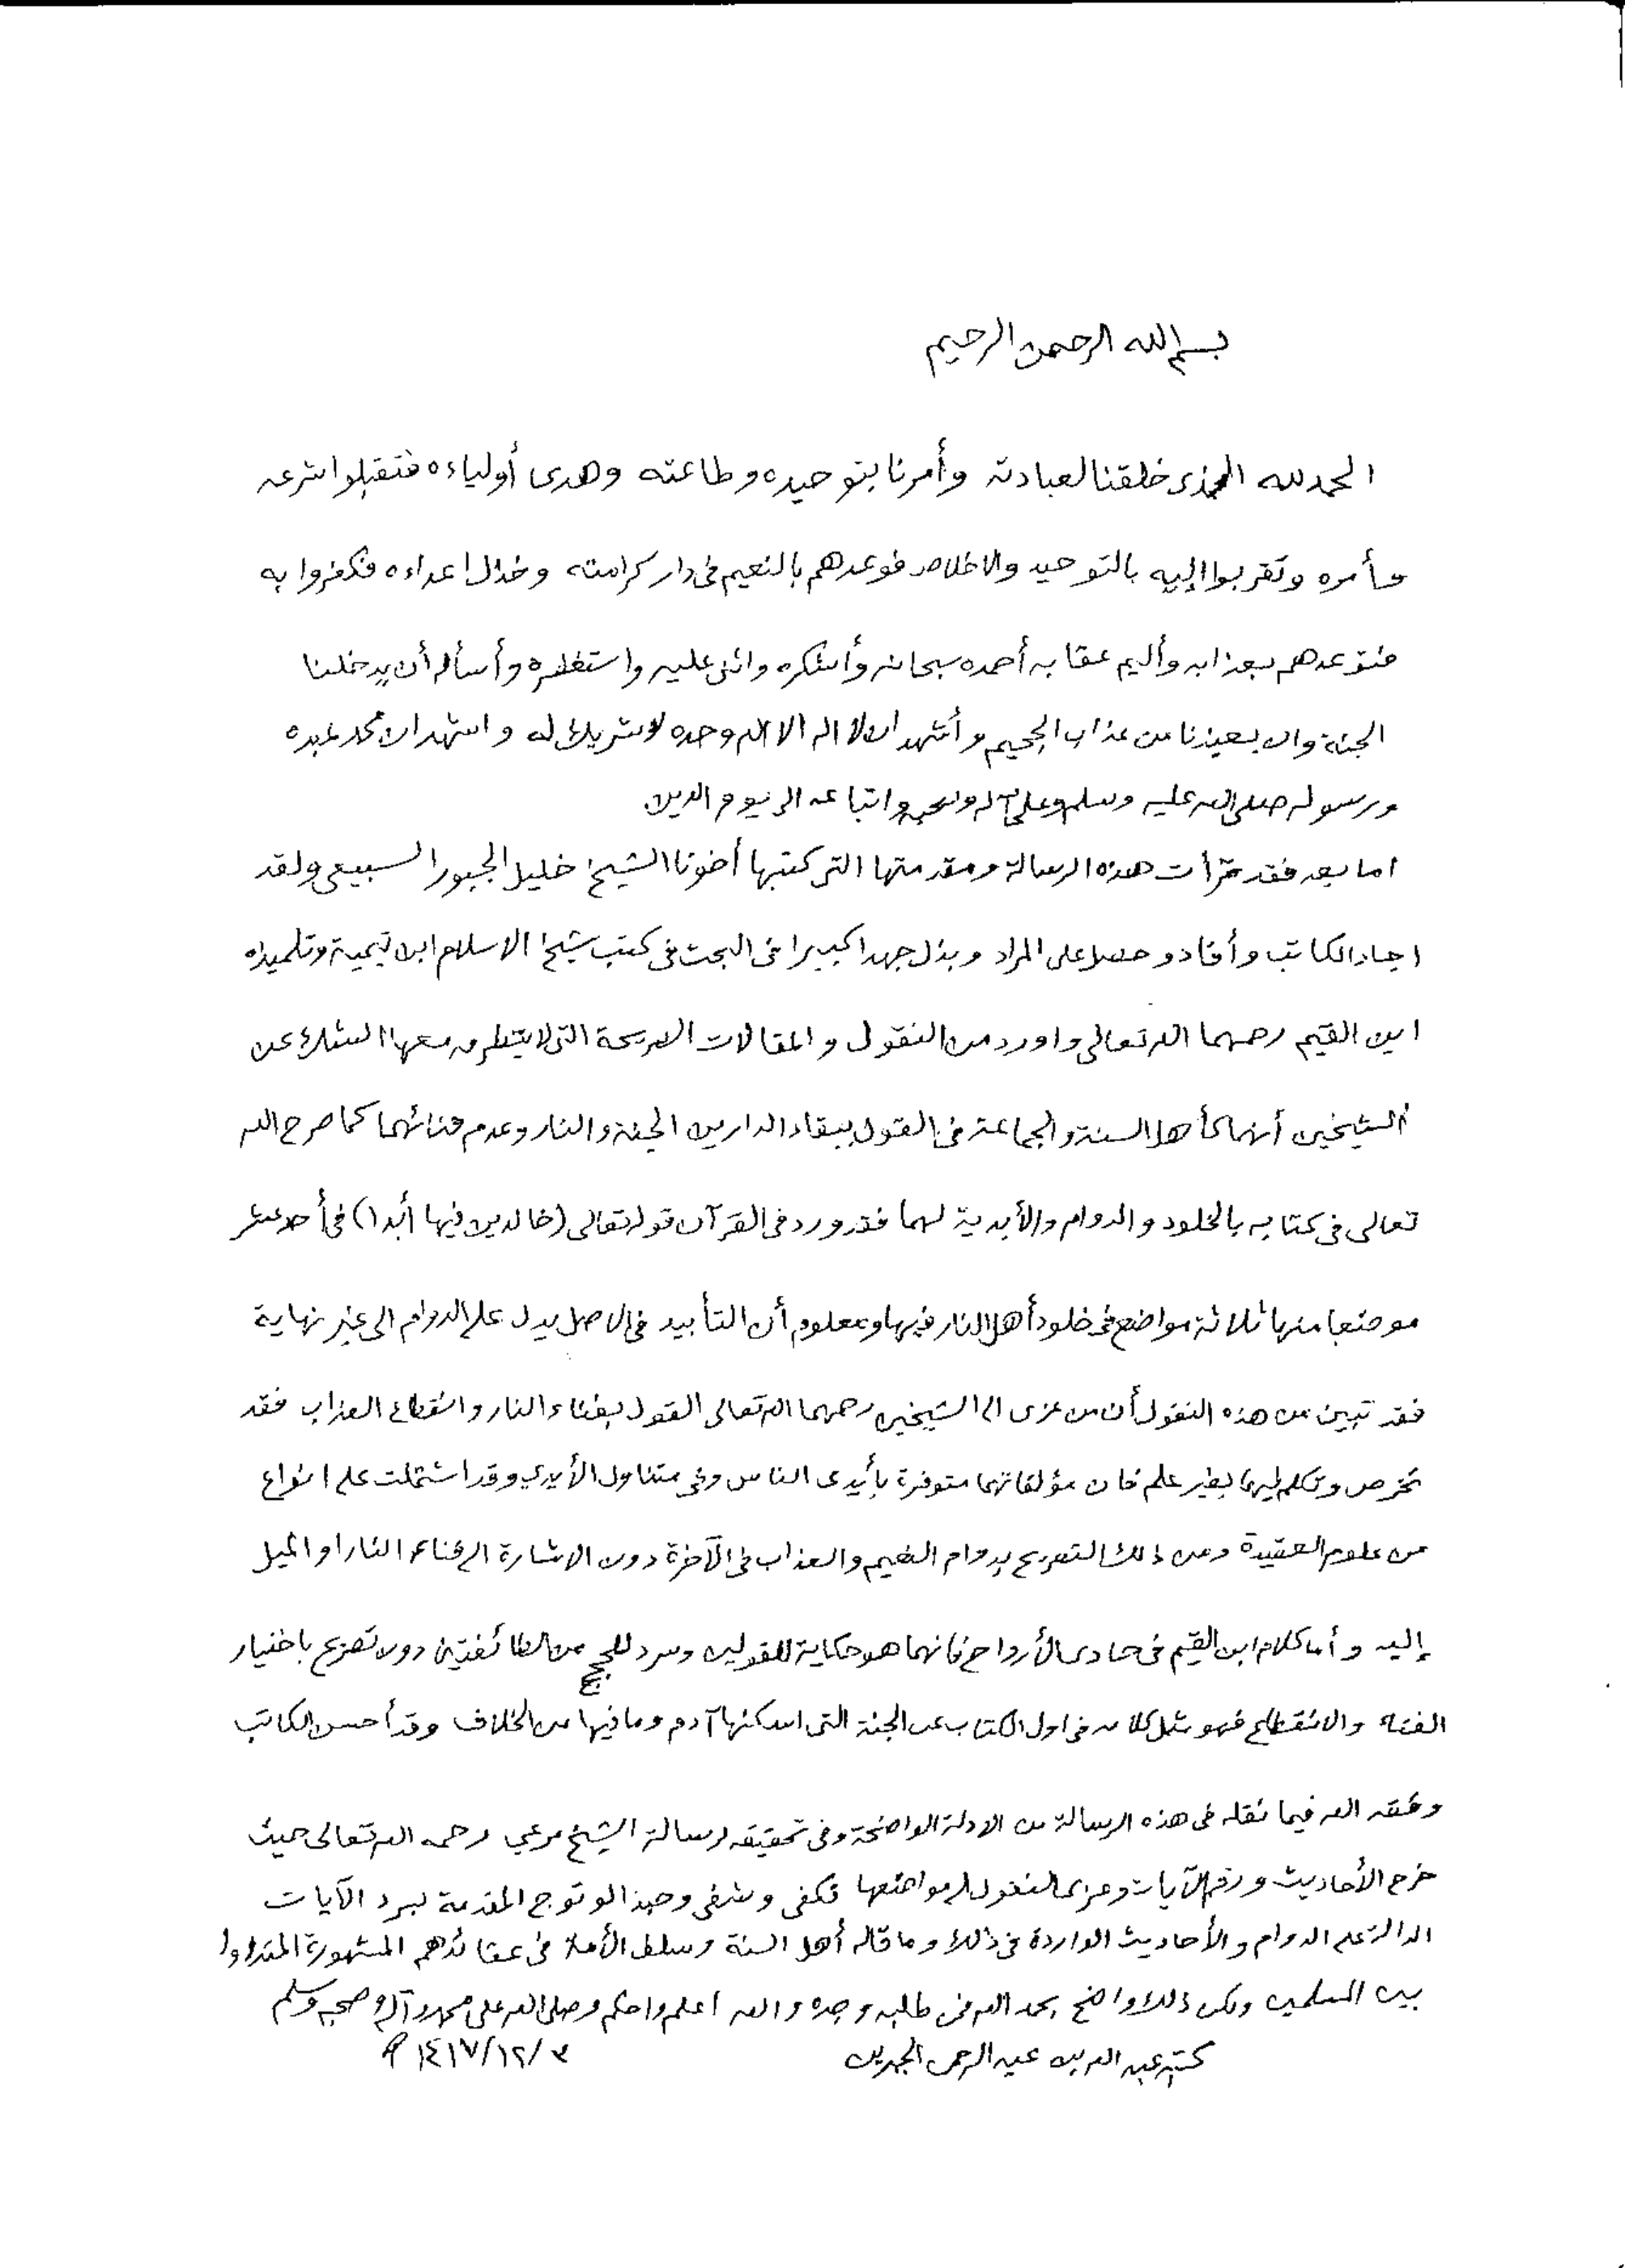 بسم الله الرحمن الرحيم
الحمد لله الذي خلقنا لعبادته وأمرنا بتوحيده وطاعته وهدى أولياءه فتقبلوا شرعه
وأمره وتقربوا إليه بالتوحيد والاخلاص فوعدهم بالنعيم في دار كرامته وخذل اعداءه فكفروا به
فتوعدهم بعذابه وأليم عقابه أحمده سبحانه وأشكره واثني عليه واستغفره وأسأله أن يدخلنا
الجنة وان يعيذنا من عذاب الجحيم وأشهد ان لا اله الا الله وحده لا شريك له واشهد ان محمد عبده
ورسوله صلى الله عليه وسلم وعلى آله وصحبه واتباعه الى يوم الدين
اما بعد فقد قرأت هذه الرسالة ومقدمتها التي كتبها أخونا الشيخ خليل الجبور السبيعي ولقد
اجاد الكاتب وأفاد وحصل على المراد وبذل جهدا كبيرا في البحث في كتب شيخ الاسلام ابن تيمية وتلميذه
ابن القيم رحمهما الله تعالى واورد من النقول والمقالات الصريحة التي لا يتطرق معها الشك عن
الشيخين أنهما كأهل السنة والجماعة في القول ببقاء الدارين الجنة والنار وعدم فنائهما كما صرح الله
تعالى في كتابه بالخلود والدوام والأبدية لهما فقد ورد في القرآن قوله تعالى (خالدين فيها أبدا) في أحد عشر
موضعا منها ثلاثة مواضع في خلود أهل النار فيها ومعلوم أن التأبيد في الاصل يدل على الدوام الى غير نهاية
فقد تبين من هذه النقول أن من عزى الى الشيخين رحمهما الله تعالى القول بفناء النار وانقطاع العذاب فقد
تخرص وتكلم فيهما بغير علم فان مؤلفاتهما متوفرة بأيدى الناس وفي متناول الأيدي وقد اشتملت على انواع
من علوم العقيدة ومن ذلك التصريح بدوام النعيم والعذاب في الآخرة دون الاشارة الى فناء النار او الميل
إليه وأما كلام ابن القيم في حادى الأرواح فانهما هو حكاية للقولين وسرد للحجج من الطائفتين دون تصريح باختيار
الفناء والانقطاع فهو مثل كلامه في اول الكتاب عن الجنة التي اسكنها آدم وما فيها من الخلاف وقد أحسن الكاتب
وفقه الله فيما نقله في هذه الرسالة من الادلة الواضحة وفي تحقيقه لرسالة الشيخ مرعي رحمه الله تعالى حيث
خرج الأحاديث ورقم الآيات وعزى النقول الى مواضعها فكفى وشفى وحبذا لو توج المقدمة بسرد الآيات
الدالة على الدوام والأحاديث الواردة في ذلك وما قاله أهل السنة وسلف الأمة في عقائدهم المشهورة المتداولة
بين المسلمين ولكن ذلك واضح بحمد الله فمن طلبه وجده والله اعلم واحكم وصلى الله على محمد وآله وصحبه وسلم
كتبه عبد الله بن عبد الرحمن الجبرين ٣/١٢/١٤١٧ هـ